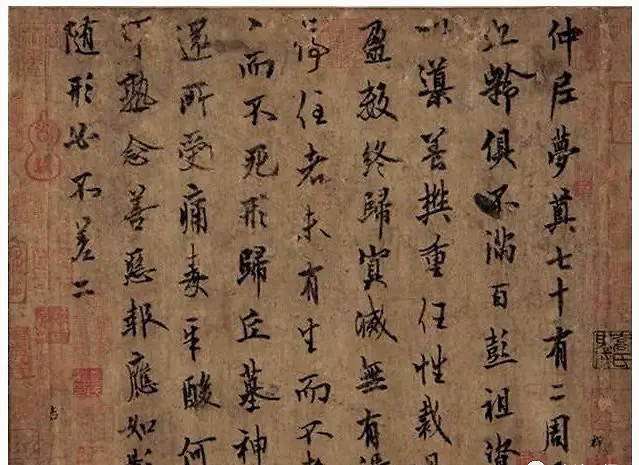 仲尼夢奠七十有二周
齡俱不滿百彭祖資
導養樊重任性裁
盈數終歸冥滅無有
停住者未有生而不
而不死形歸丘墓神
還所受痛毒辛酸何
可熟念善惡報應如影
隨形必不差二